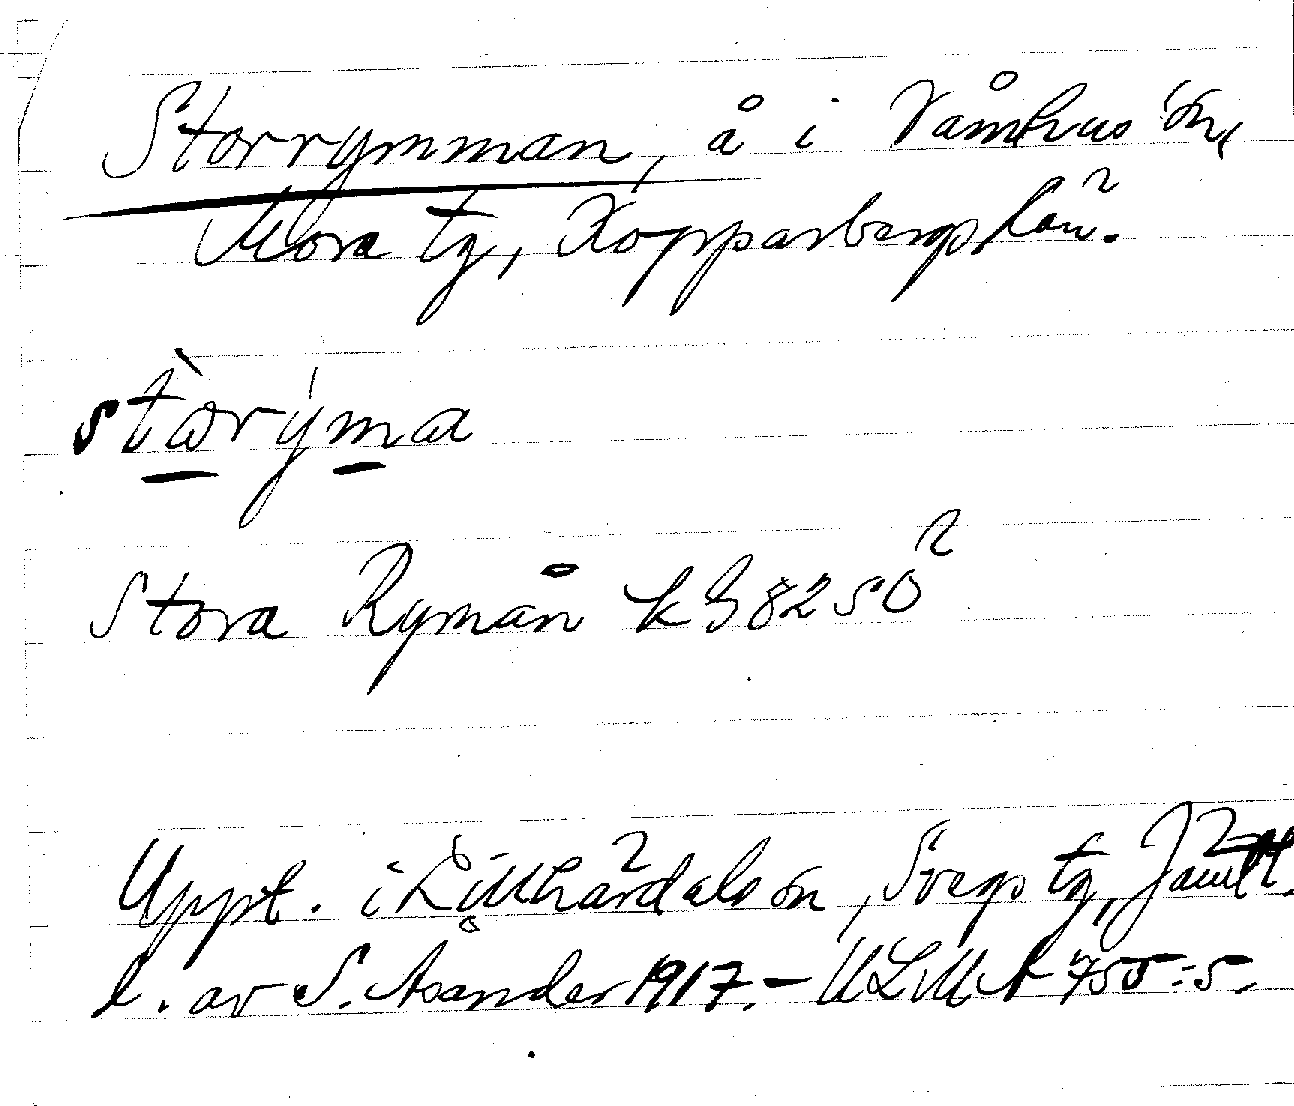 Storrymman, å i Våmhus sn,
Mora tg, Kopparbergs län.
stωrýma
Stora Rymån kB 82 SO
Uppt. i Lillhärdals sn, Svegs tg, Jämtl.
l. av S. Åsander 1917. - ULMA 755:5.